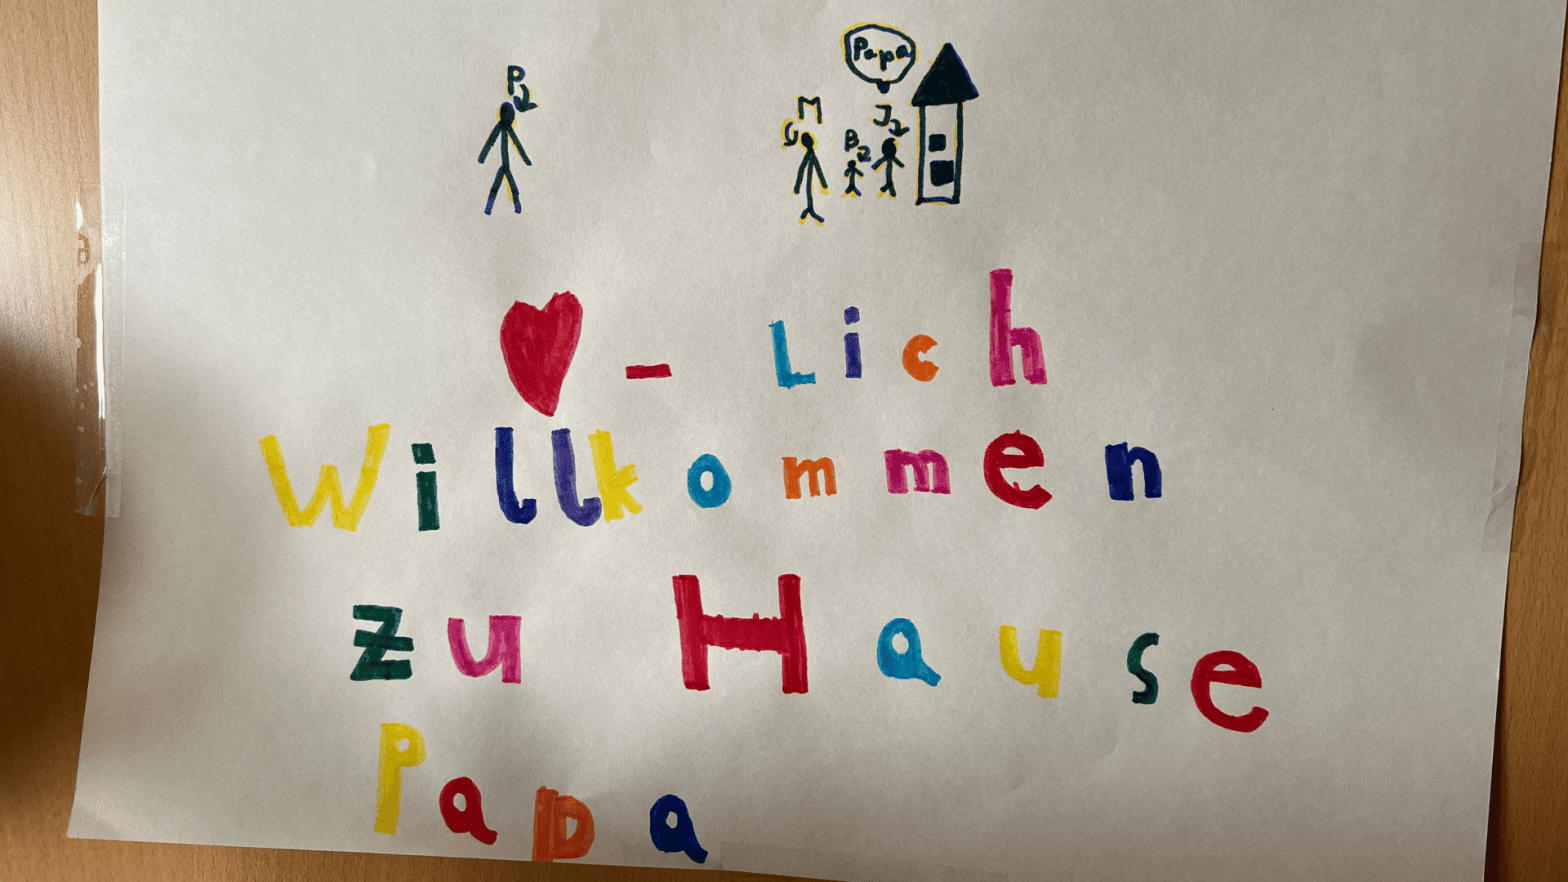 P
Papa
M
B
J
❤-Lich
Willkommen
zu Hause
Papa